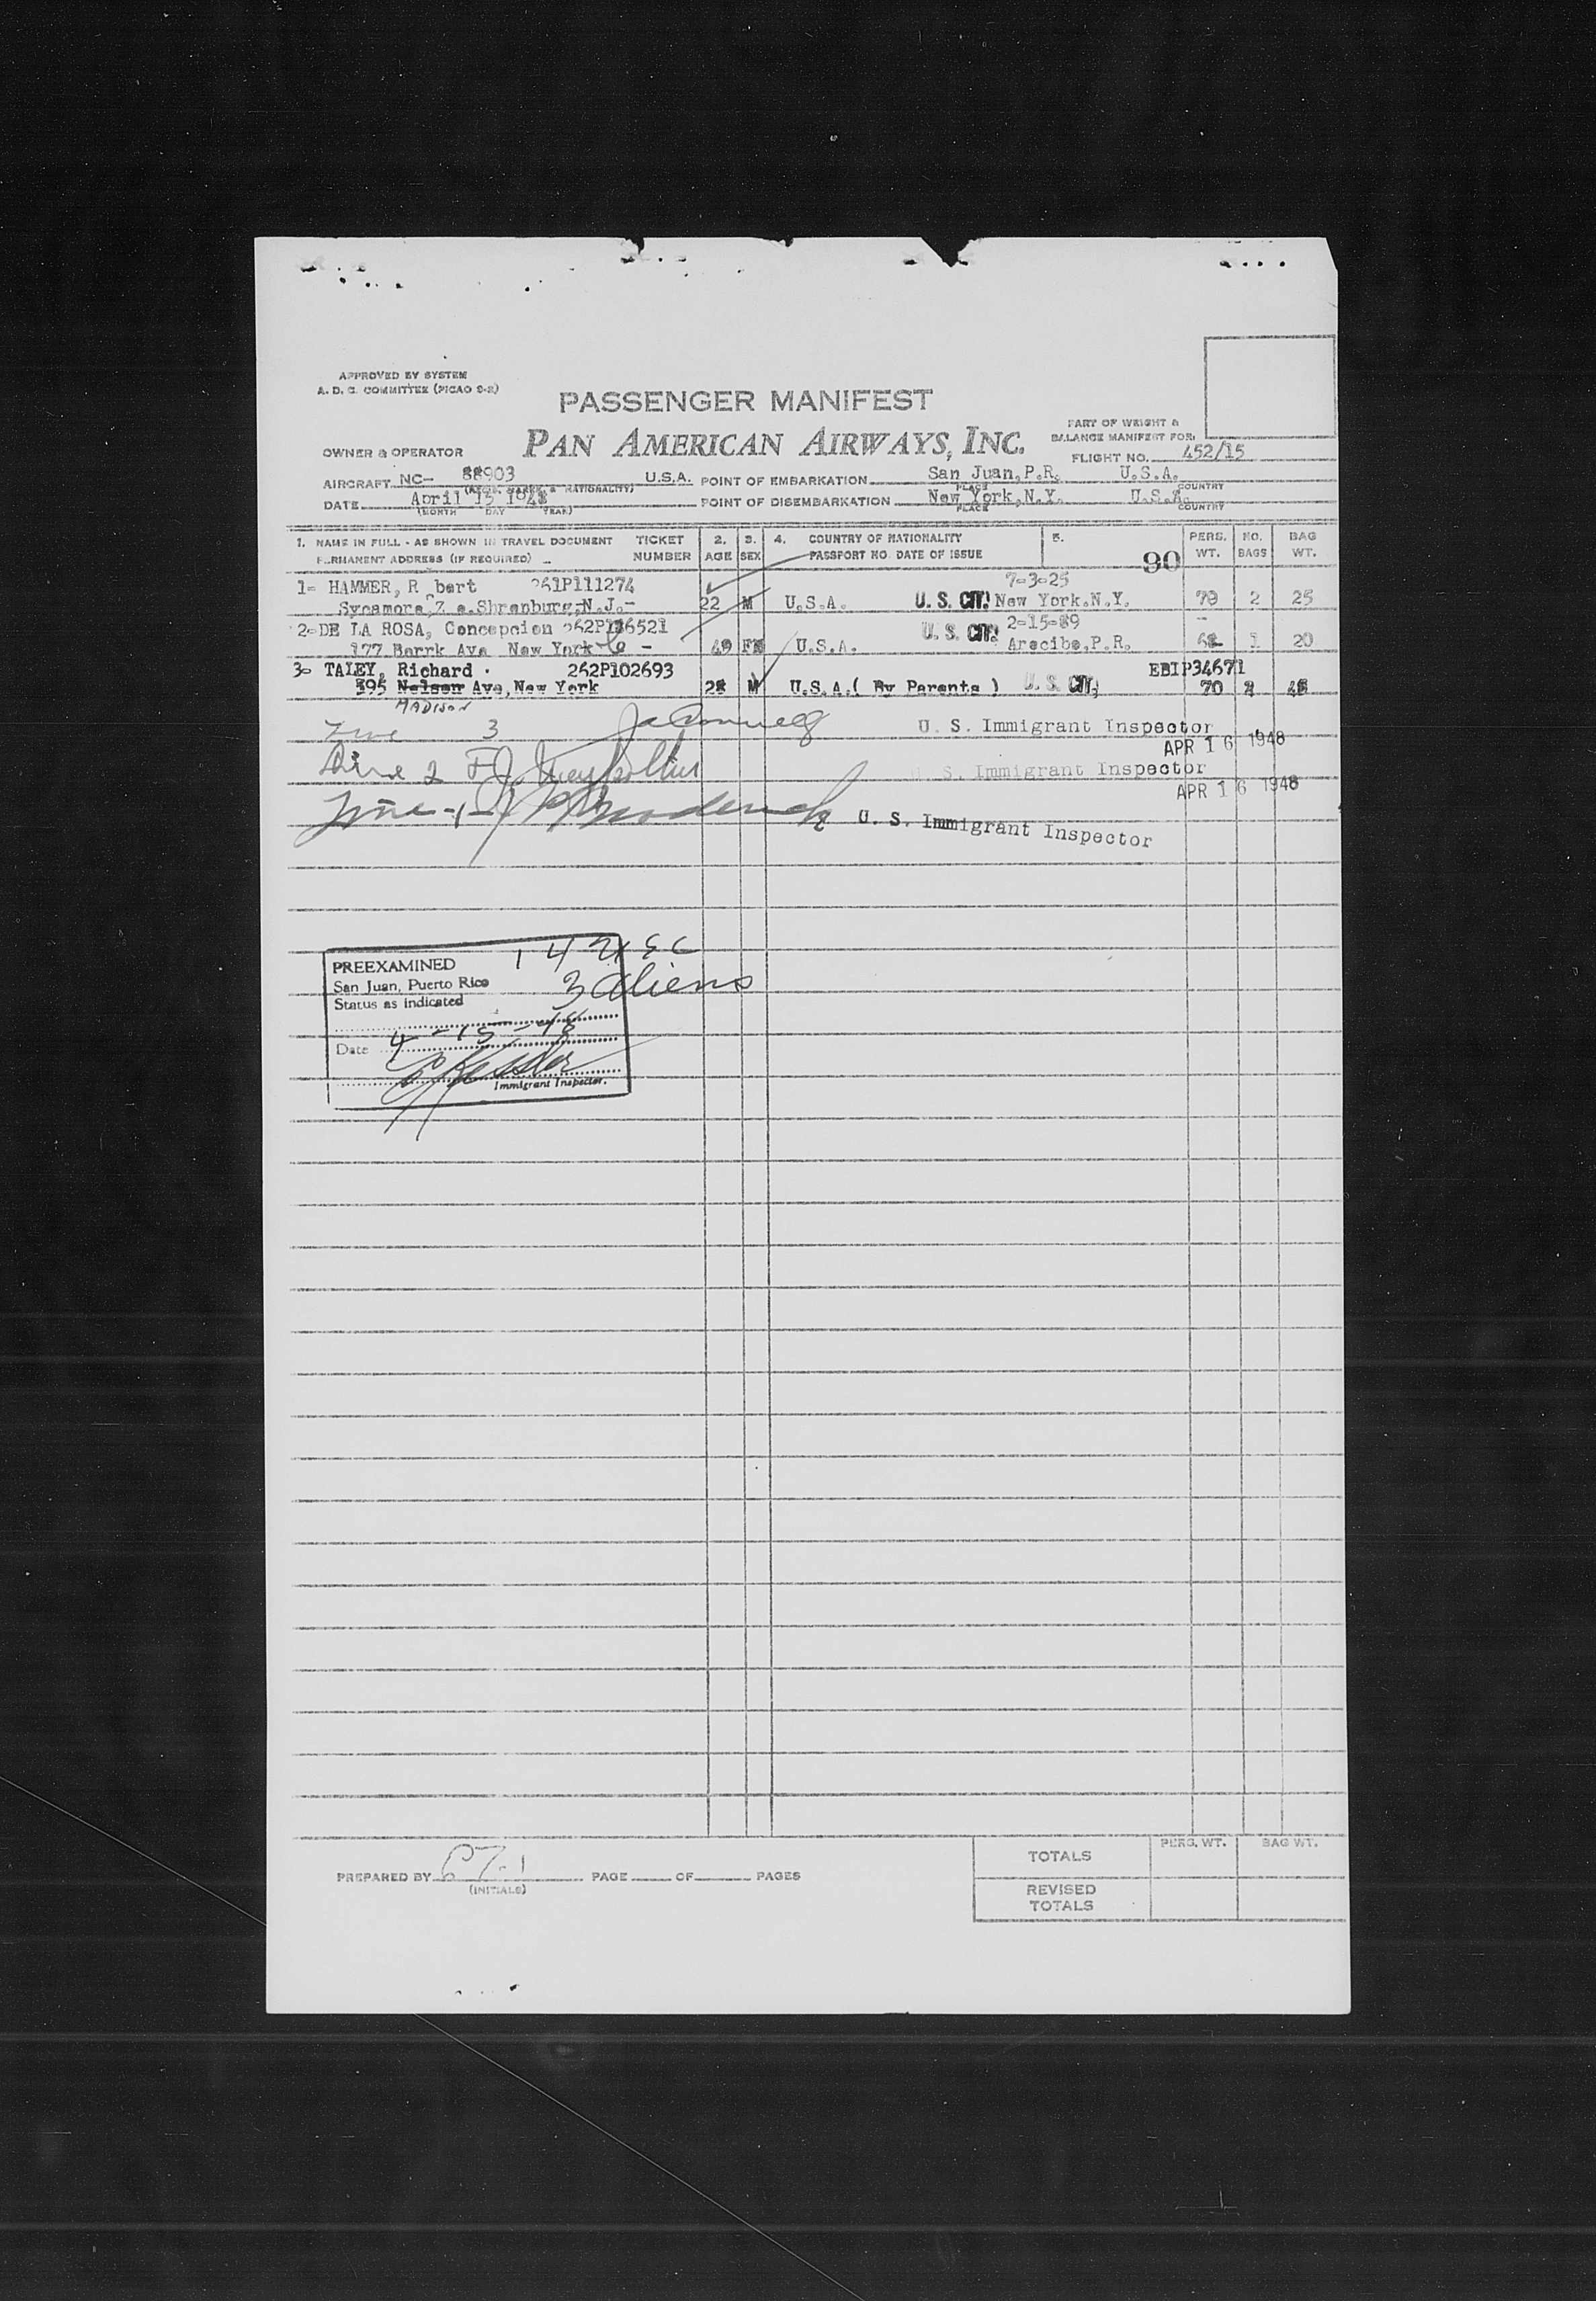 APPROVED BY SYSTEM
A. D. C. COMMITTEE (PICAO 9-2)
PASSENGER MANIFEST
PAN AMERICAN AIRWAYS, INC.
PART OF WEIGHT &
BALANCE MANIFEST FOR:
OWNER & OPERATOR
FLIGHT NO. 452/15
AIRCRAFT NC- 88903 U.S.A. POINT OF EMBARKATION San Juan,P.R. U.S.A.
(REGIS. MARKS & NATIONALITY) PLACE COUNTRY
DATE April 15 1948 POINT OF DISEMBARKATION New York,N.Y. U.S.A.
(MONTH DAY YEAR) PLACE COUNTRY
1. NAME IN FULL - AS SHOWN IN TRAVEL DOCUMENT TICKET 2. 3. 4. COUNTRY OF NATIONALITY 5. PERS. NO. BAG
PERMANENT ADDRESS (IF REQUIRED) NUMBER AGE SEX PASSPORT NO. DATE OF ISSUE 90 WT. BAGS WT.
1- HAMMER, R bert 261P111274 7-3-25
Sycamore, N.J.- 22 M U.S.A. U. S. CIT. New York.N.Y. 70 2 25
2-DE LA ROSA, Concepcion 2-15-89
177 Ave New York - 49 F U.S.A. U. S. CIT. Arecibo,P.R. 1 20
3- TALEY, Richard 262P102693 EBIP34671
395 Nelson Ave,New York M U.S.A.( By Parents ) U. S. CIT. 70
MADISON
Line 3 U. S. Immigrant Inspector
APR 16 1948
Line 2 U. S. Immigrant Inspector
APR 16 1948
Line -1- U. S. Immigrant Inspector
PREEXAMINED
San Juan, Puerto Rico 3 aliens
Status as indicated
Date 4-15-48
Immigrant Inspector.
PREPARED BY PAGE OF PAGES
(INITIALS)
PERS. WT. BAG WT.
TOTALS
REVISED
TOTALS